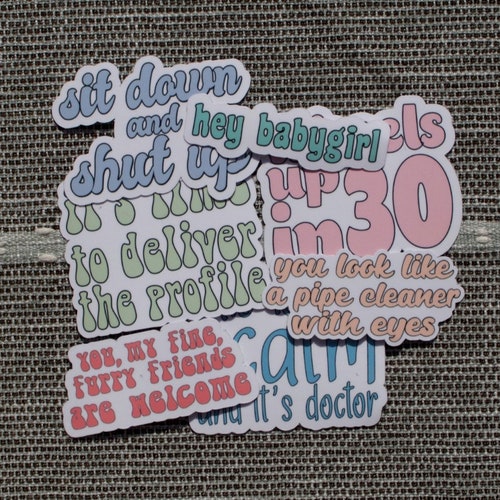 sit down
and
shut up
hey babygirl
up
in 30
it's time
to deliver
the profile
you look like
a pipe cleaner
with eyes
you, my fine,
furry friends
are welcome
calm
and it's doctor